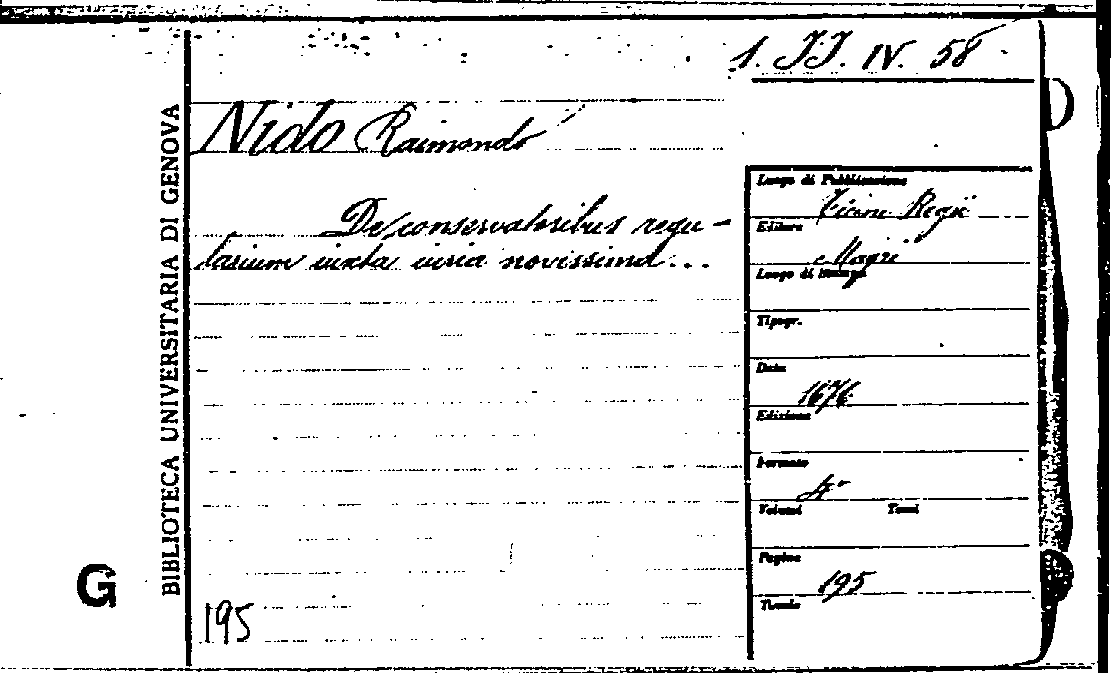 1. JJ. IV. 58
BIBLIOTECA UNIVERSITARIA DI GENOVA
Nido Raimondo
De conservatoribus regu-
larium iuxta iuria novissima...
Luogo di Pubblicazione
Ticini Regii
Editore
Magri
Luogo di stampa
Tipogr.
Data
1676
Edizione
Formato
4°
Volumi Tomi
Pagine
195
Tavole
G
195